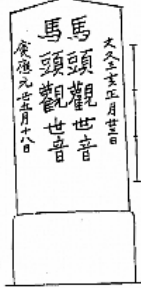 文久三亥正月廿三日
馬頭觀世音
馬頭觀世音
慶應元丑五月十八日